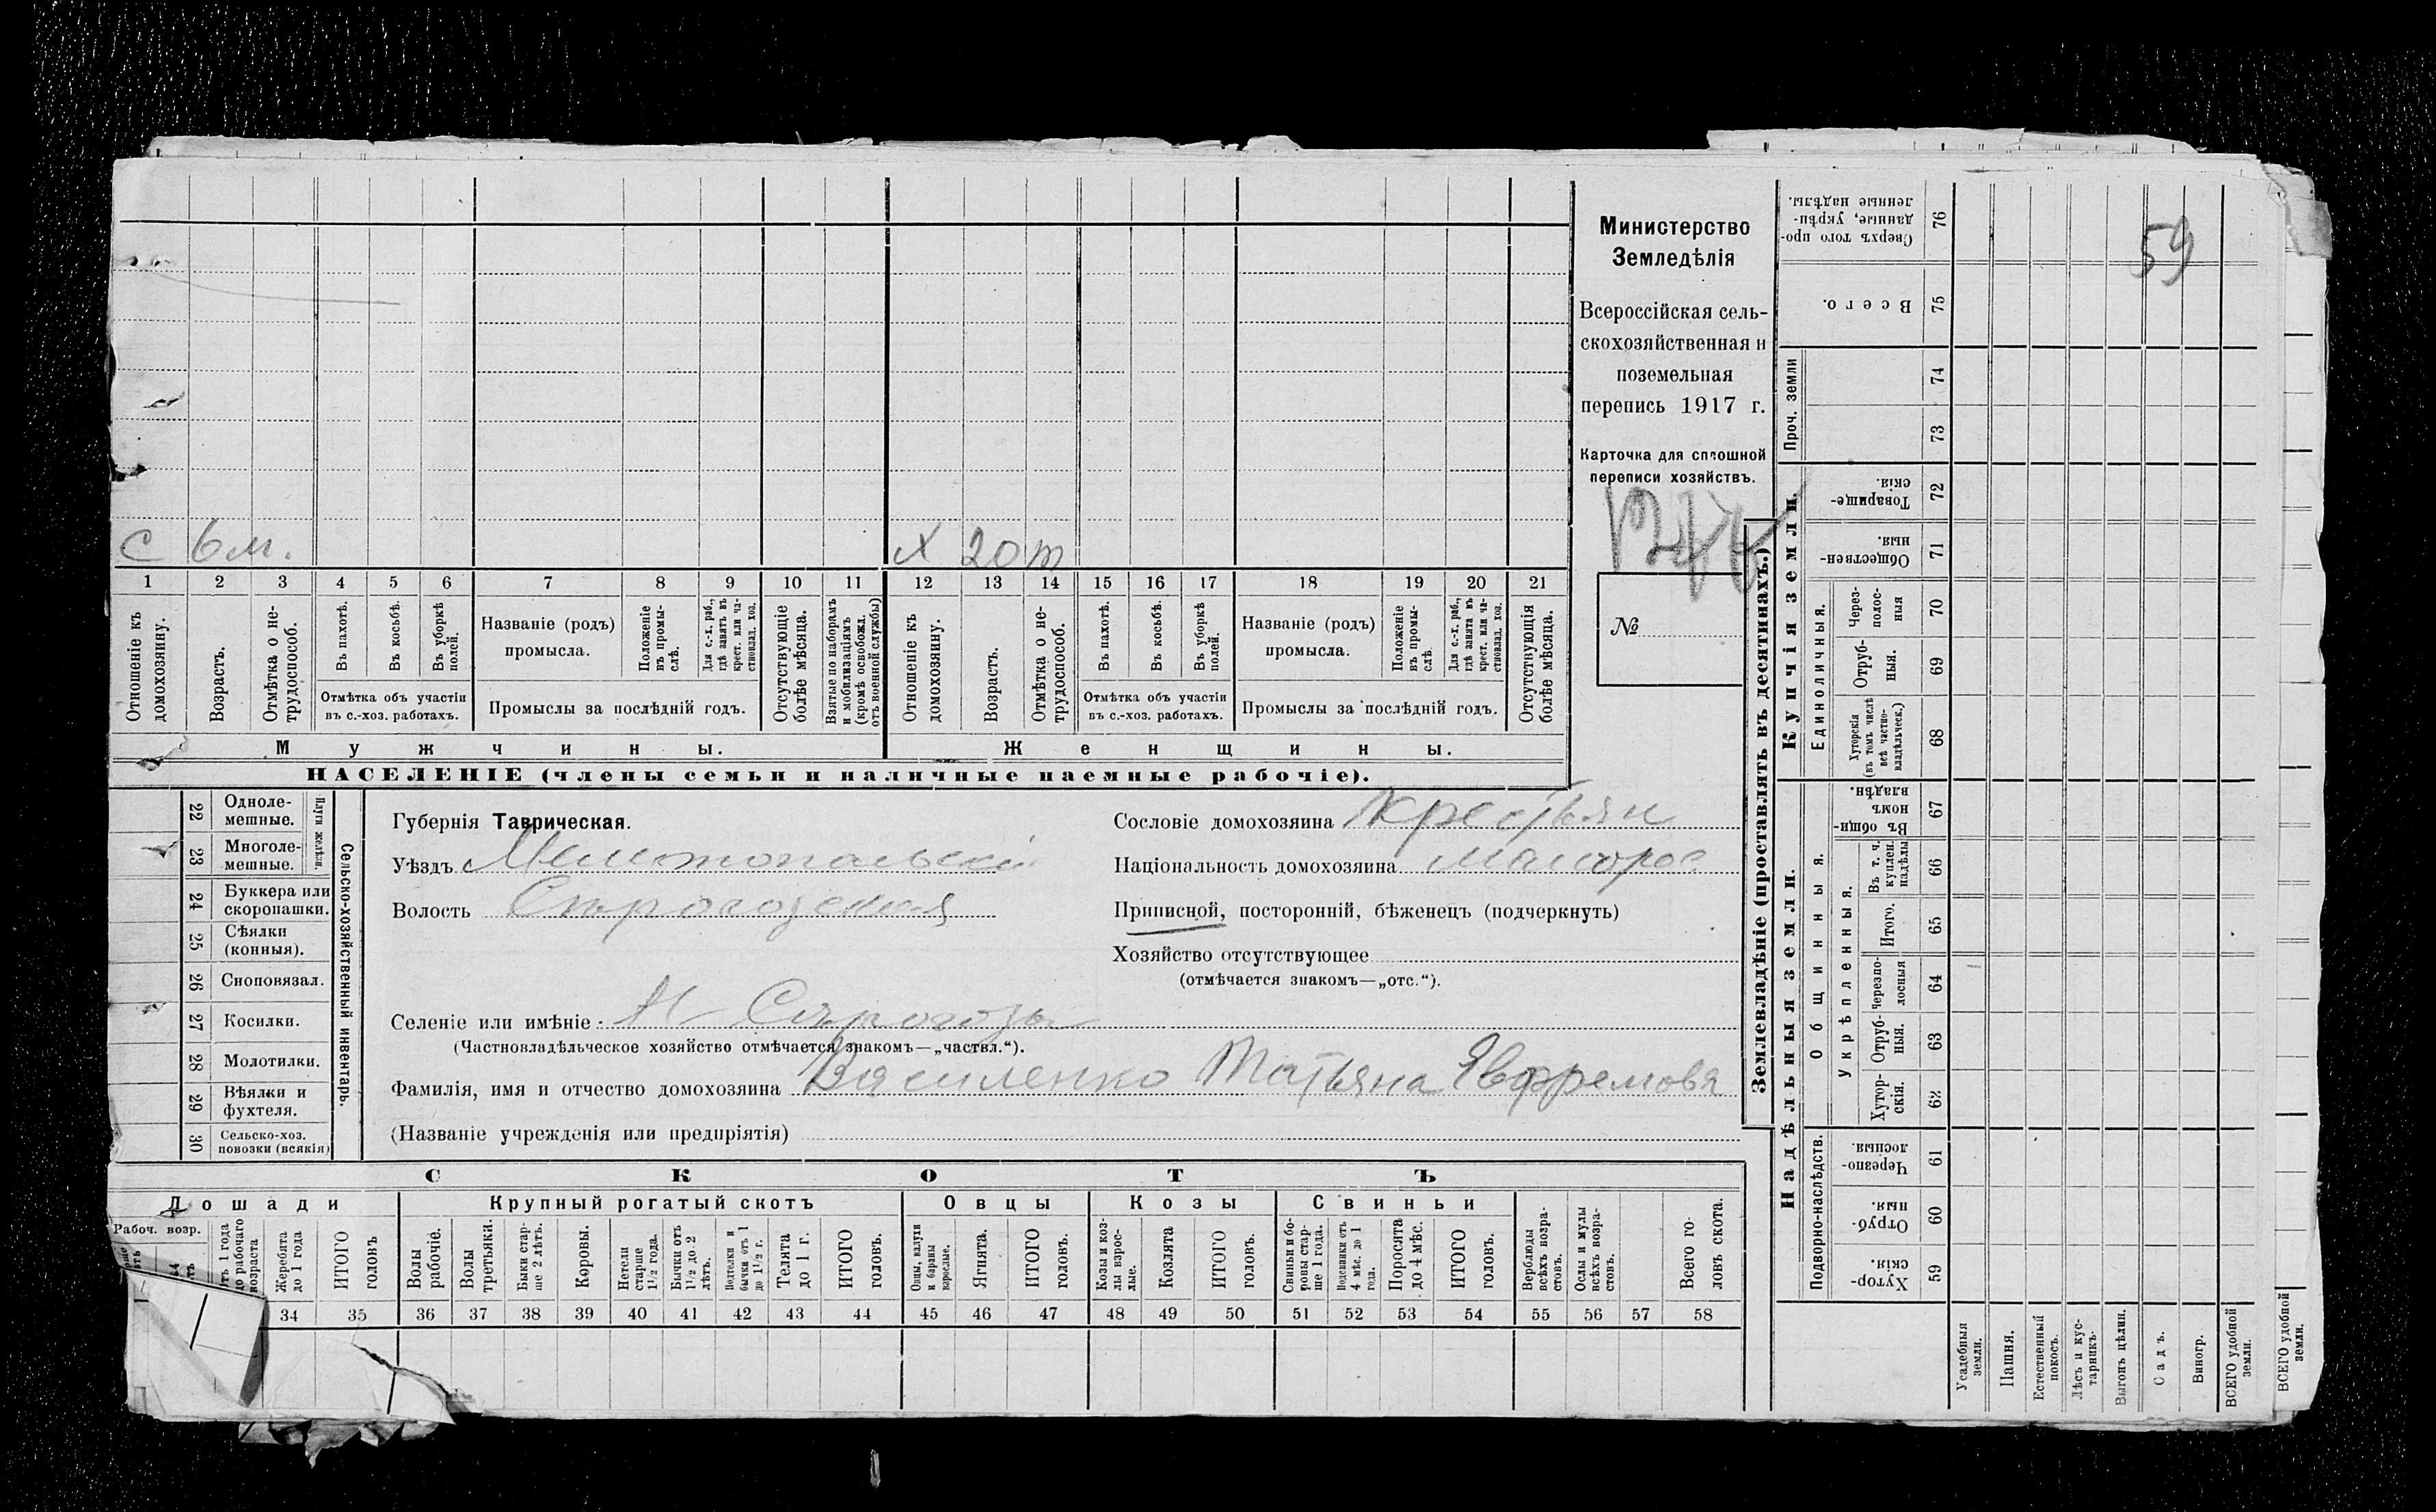 59
Министерство
Земледѣлія
Всероссійская сель-
скохозяйственная и
поземельная
перепись 1917 г.
Карточка для сплошной
переписи хозяйствъ.
№
С 6 м. Х 20 т
1 2 3 4 5 6 7 8 9 10 11 12 13 14 15 16 17 18 19 20 21
Отношеніе къ домохозяину.
Возрастъ.
Отмѣтка о не-трудоспособ.
Въ пахотѣ.
Въ косьбѣ.
Въ уборкѣ полей.
Отмѣтка объ участіи
въ с.-хоз. работахъ.
Названіе (родъ)
промысла.
Положеніе въ промы-слѣ.
Для с.-х. раб., гдѣ занятъ въ крест. или ча-стновлад. хоз.
Промыслы за послѣдній годъ.
Отсутствующіе болѣе мѣсяца.
Взятые по наборамъ и мобилизаціямъ (кромѣ освобожд. отъ военной службы)
Отношеніе къ домохозяину.
Возрастъ.
Отмѣтка о не-трудоспособ.
Въ пахотѣ.
Въ косьбѣ.
Въ уборкѣ полей.
Отмѣтка объ участіи
въ с.-хоз. работахъ.
Названіе (родъ)
промысла.
Положеніе въ промы-слѣ.
Для с.-х. раб., гдѣ занята въ крест. или ча-стновлад. хоз.
Промыслы за послѣдній годъ.
Отсутствующія болѣе мѣсяца.
Мужчины. Женщины.
НАСЕЛЕНІЕ (члены семьи и наличные наемные рабочіе).
Сельско-хозяйственный инвентарь.
Плуги желѣзн.
22 Одноле-мешные.
23 Многоле-мешные.
24 Буккера или скоропашки.
25 Сѣялки (конныя).
26 Сноповязал.
27 Косилки.
28 Молотилки.
29 Вѣялки и фухтеля.
30 Сельско-хоз. повозки (всякія)
Губернія Таврическая.
Уѣздъ Мелитопольскі
Волость
Селеніе или имѣніе Н Сѣрогозы
(Частновладѣльческое хозяйство отмѣчается знакомъ—„частвл.“).
Фамилія, имя и отчество домохозяина Василенко Татьяна Явфремовя
(Названіе учрежденія или предпріятія)
Сословіе домохозяина крестьян
Національность домохозяина малорос
Приписной, посторонній, бѣженецъ (подчеркнуть)
Хозяйство отсутствующее
(отмѣчается знакомъ—„отс.“).
СКОТЪ
Лошади Крупный рогатый скотъ Овцы Козы Свиньи
Рабоч. возр.
Жеребята до 1 года
ИТОГО головъ
Волы рабочіе.
Волы третьяки.
Быки стар-ше 2 лѣтъ.
Коровы.
Нетели старше 1½ года.
Бычки отъ 1½ до 2 лѣтъ.
Нетельки и бычки отъ 1 до 1½ г.
Телята до 1 г.
ИТОГО головъ.
Овцы, валухи и бараны взрослые.
Ягнята.
ИТОГО головъ.
Козы и коз-лы взрос-лые.
Козлята
ИТОГО головъ.
Свиньи и бо-ровы стар-ше 1 года.
Подсвинки отъ 4 мѣс. до 1 года.
Поросята до 4 мѣс.
ИТОГО головъ.
Верблюды всѣхъ возра-стовъ.
Ослы и мулы всѣхъ возра-стовъ.
Всего го-ловъ скота.
34 35 36 37 38 39 40 41 42 43 44 45 46 47 48 49 50 51 52 53 54 55 56 57 58
Землевладѣніе (проставлять въ десятинахъ.)
Купчія земли.
Надѣльныя земли.
Сверхъ того про-данные, укрѣп-ленные надѣлы. 76
Всего. 75
Проч. земли 74 73
Товарище-скія. 72
Обществен-ныя. 71
Единоличныя.
Через-полос-ныя 70
Отруб-ныя. 69
Хуторскія (въ томъ числѣ всѣ частно-владѣльческ.) 68
Общинныя.
Въ общин-номъ владѣн. 67
Укрѣпленныя.
Въ т. ч. куплен. надѣлы 66
Итого. 65
Черезпо-лосныя 64
Отруб-ныя. 63
Хутор-скія. 62
Подворно-наслѣдств.
Черезпо-лосныя 61
Отруб-ныя. 60
Хутор-скія. 59
Усадебныя земли.
Пашня.
Естественный покосъ.
Лѣсъ и кус-тарникъ.
Выгонъ цѣлин.
Садъ.
Виногр.
ВСЕГО удобной земли.
ВСЕГО удобной земли.